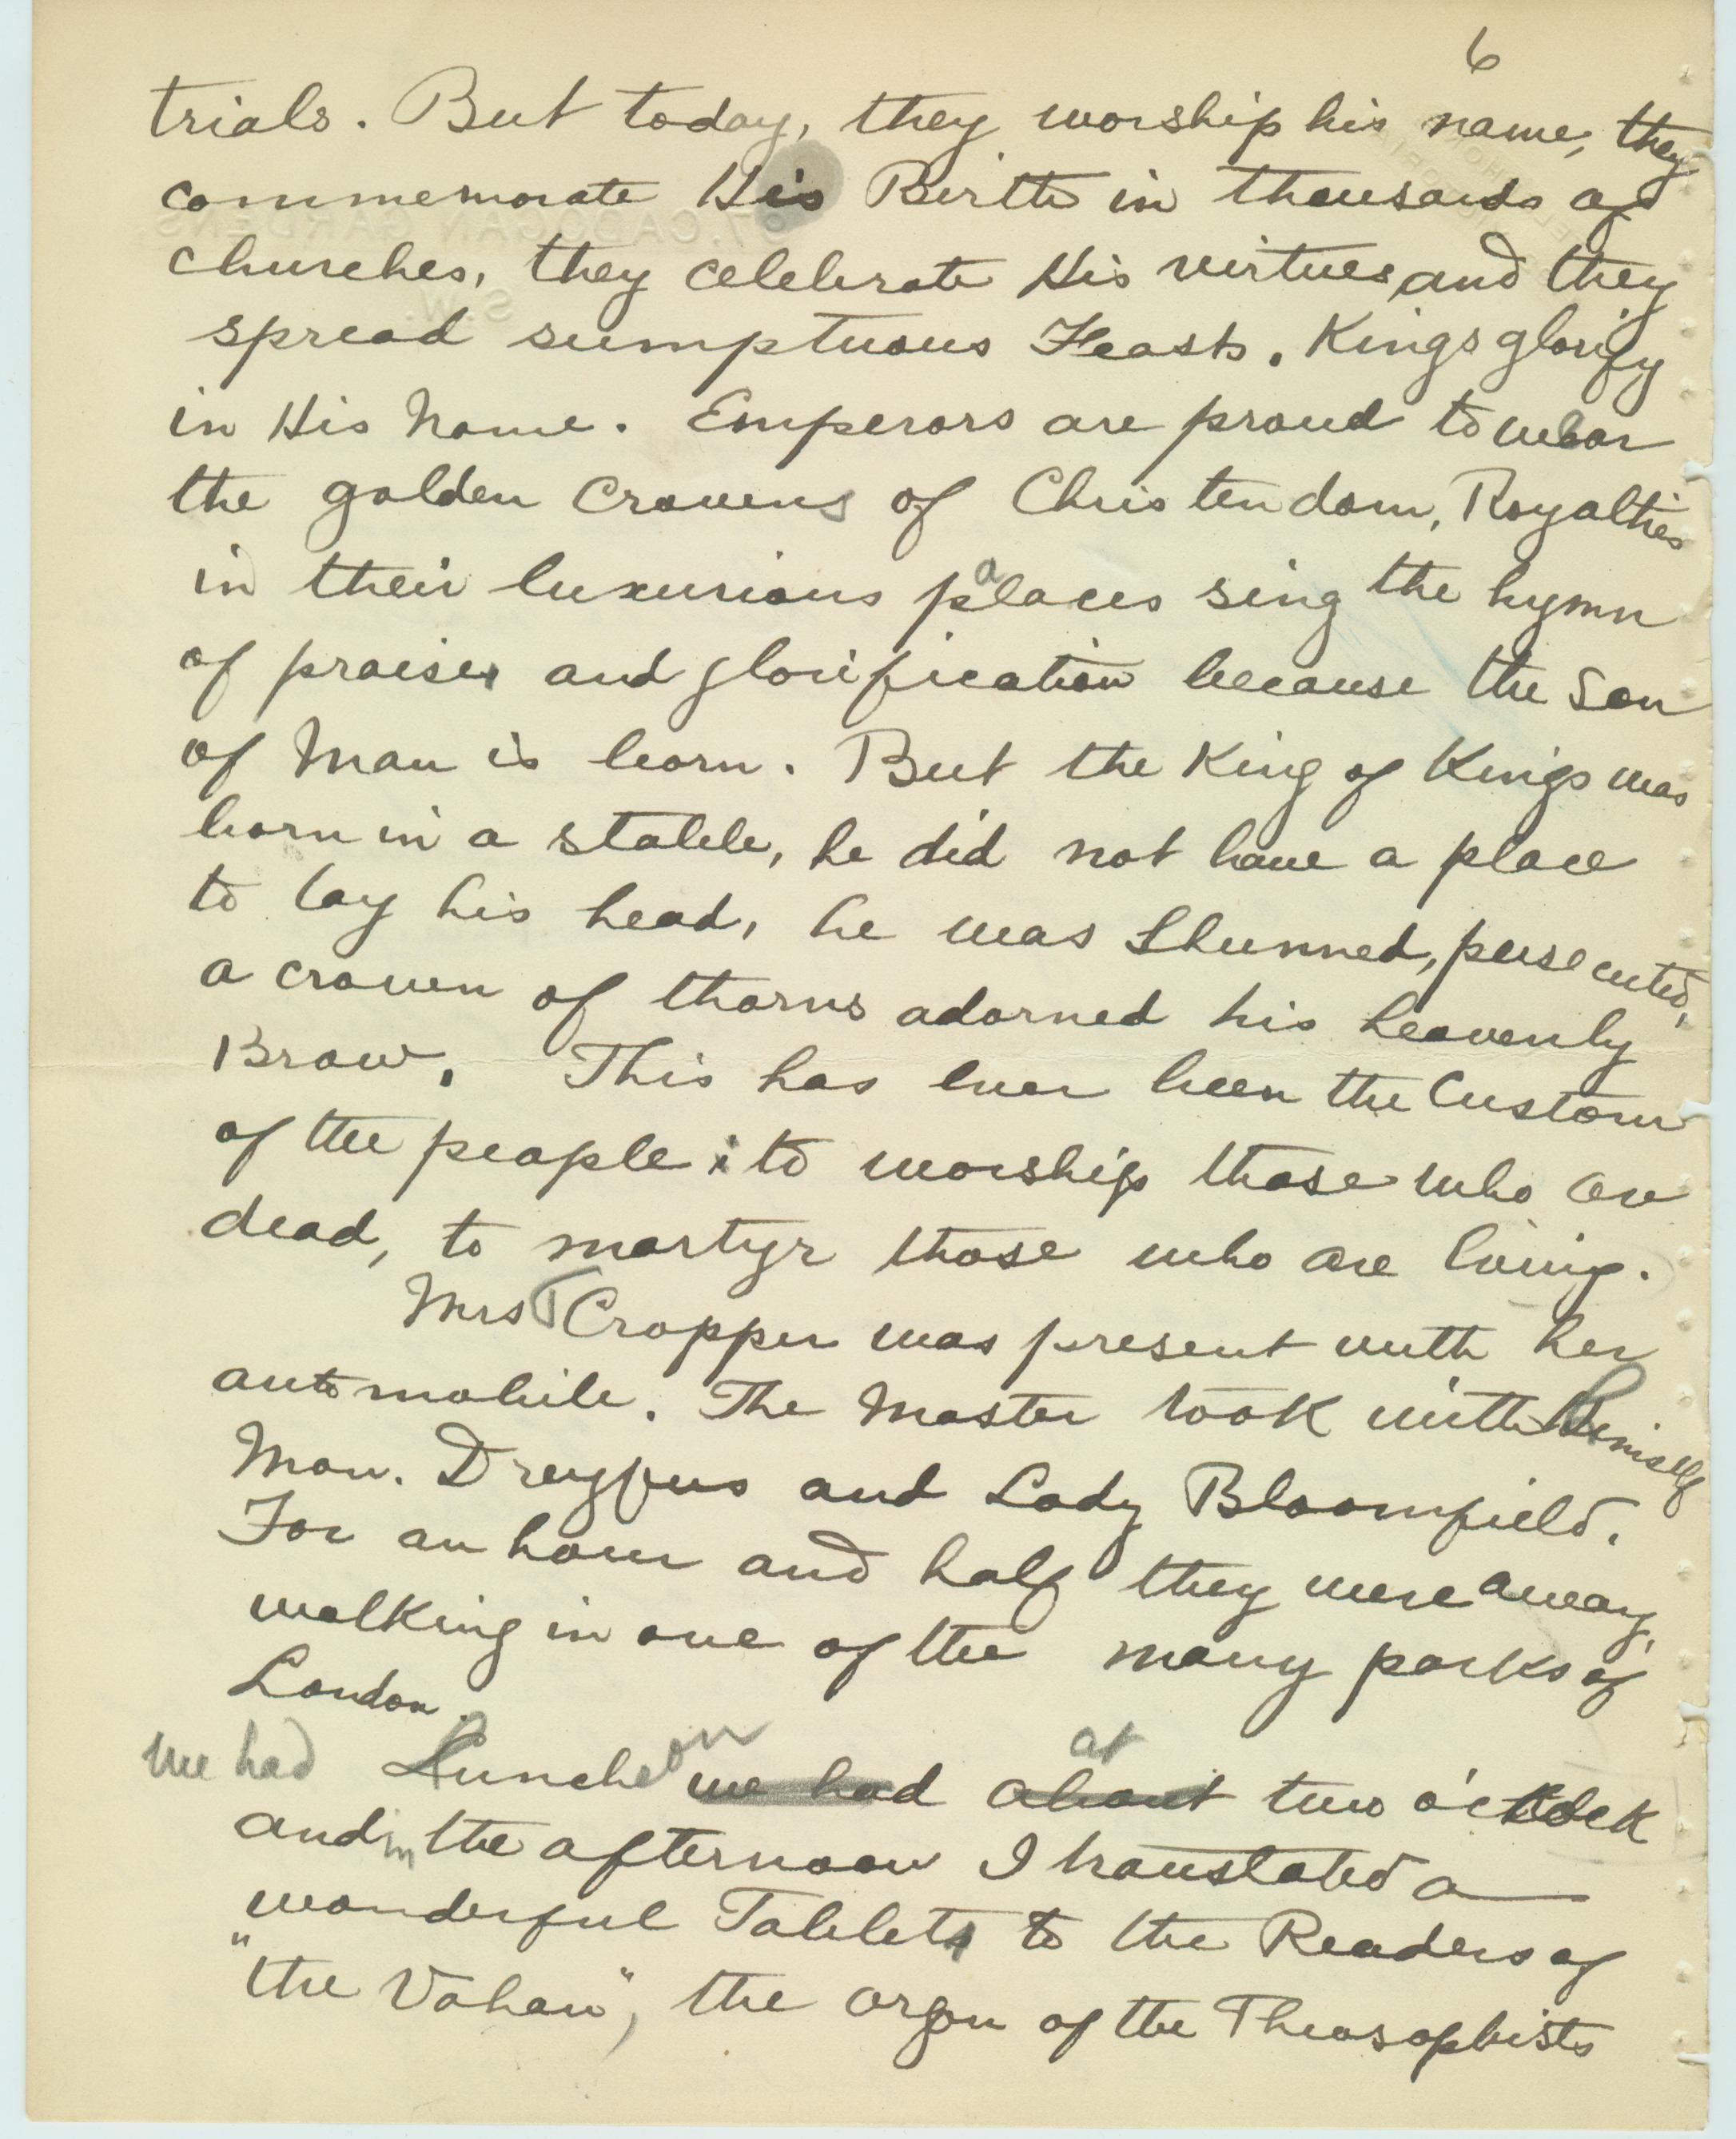 6
trials. But today, they worship his name, they
commemorate His Birth in thousands of
churches, they celebrate His virtues and they
spread sumptuous Feasts. Kings glorify
in His Name. Emperors are proud to wear
the golden Crowns of Christendom, Royalties
in their luxurious palaces sing the hymn
of praises and glorification because the Son
of Man is born. But the King of Kings was
born in a stable, he did not have a place
to lay his head, he was Shunned, persecuted,
a crown of thorns adorned his heavenly
Brow. This has ever been the Custom
of the people: to worship those who are
dead, to martyr those who are living.
Mrs Cropper was present with her
automobile. The Master took with Himself
Mon. Dreyfus and Lady Bloomfield.
For an hour and half they were away,
walking in one of the many parks of
London.
we had Luncheon we had about at two o'clock
and in the afternoon I translated a
wonderful Tablets to the Readers of
"the Vahan", the organ of the Theosophists
97, CADOGAN GARDENS,
S.W.